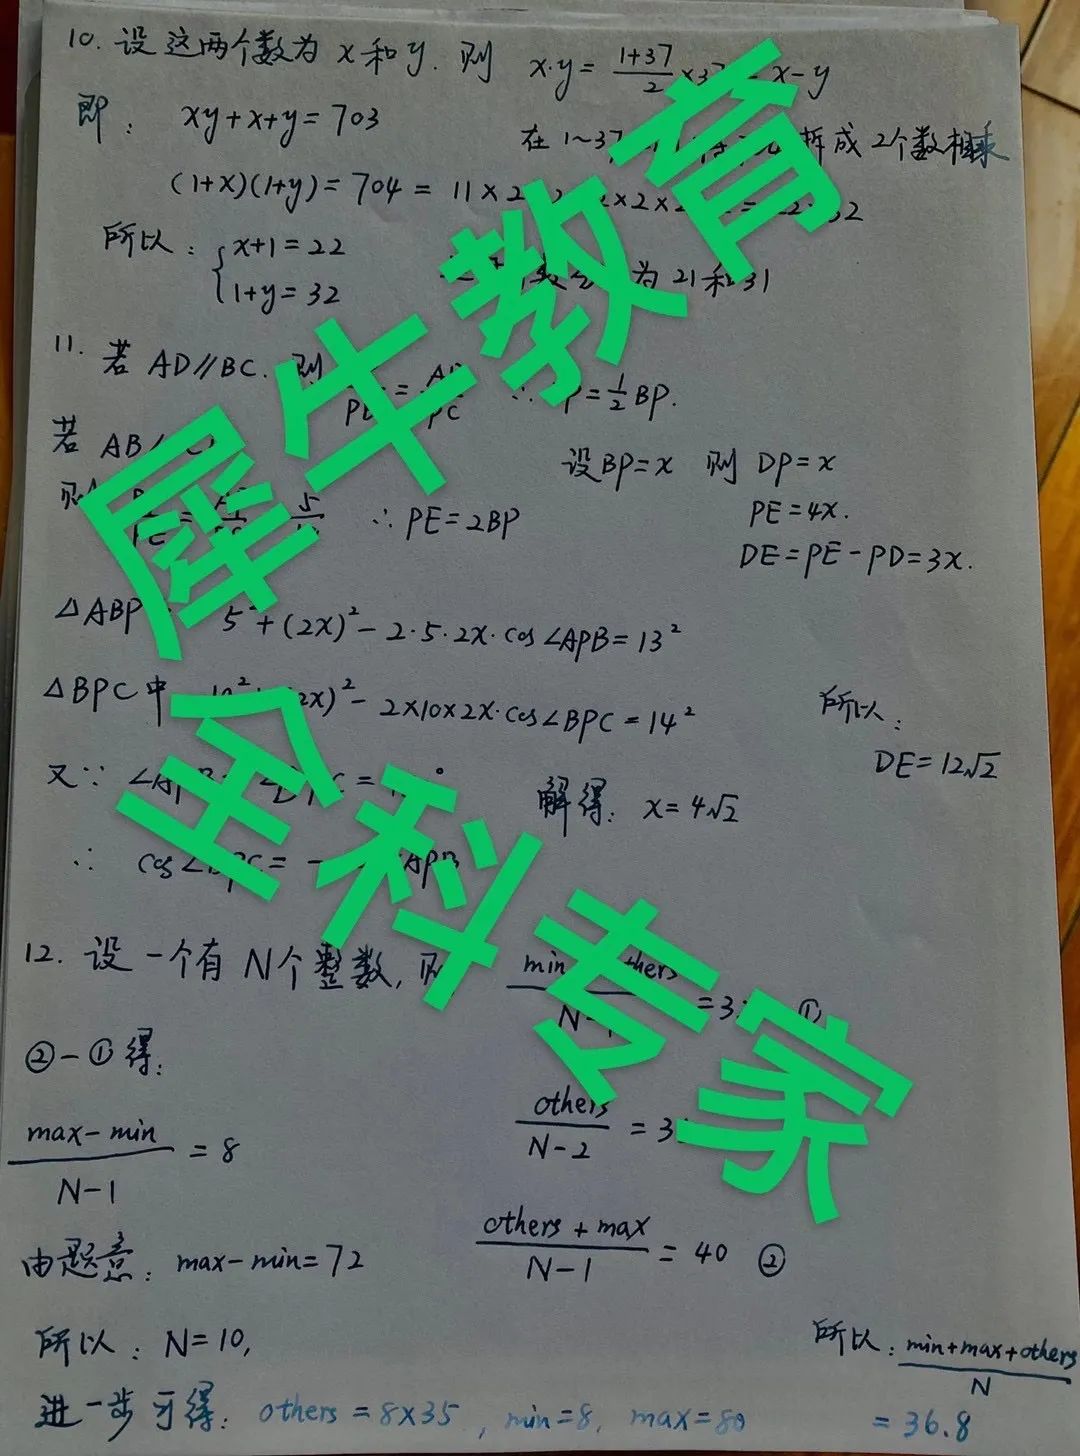 10. 设这两个数为 x 和 y. 则 x·y = (1+37)/2 ×37 - x-y
即: xy+x+y=703
在 1~37 拆成 2个数相乘
(1+x)(1+y)=704 = 11×2 ×2×2 32
所以: { x+1=22
1+y=32
为 21 和 31
11. 若 AD∥BC. 则 = ∴ P = 1/2 BP.
若 AB
则 = 5 ∴ PE=2BP
设BP=x 则 DP=x
PE=4x.
DE=PE-PD=3x.
△ABP 5²+(2x)²-2·5·2x·cos∠APB=13²
△BPC中 2x)²-2×10×2x·cos∠BPC=14²
所以:
DE=12√2
又∵ =
解得: x=4√2
∴ cos∠BPC = - APB
12. 设一个有 N个整数, 则 min others / N-1 = 3 ①
②-① 得:
others / N-2 = 3
max-min / N-1 = 8
others + max / N-1 = 40 ②
由题意: max-min=72
所以: N=10,
所以: min+max+others / N
进一步可得: others = 8×35, min=8, max=80
= 36.8
犀牛教育
全科专家